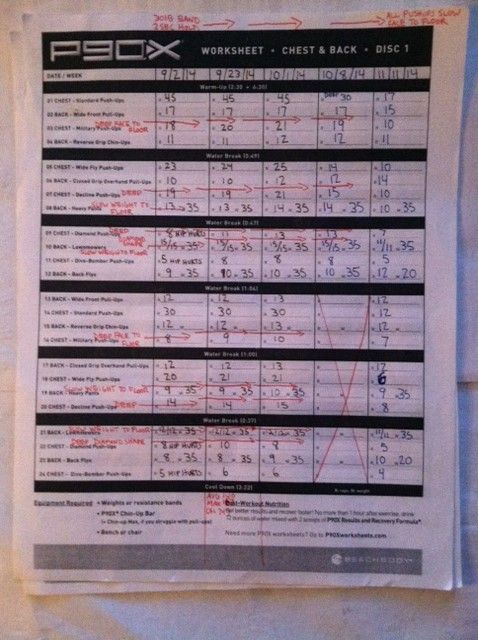 30LB BAND
2 SEC HOLD
ALL PUSHUPS SLOW
FACE TO FLOOR
P90X WORKSHEET • CHEST & BACK • DISC 1
DATE / WEEK 9/2/14 9/23/14 10/1/14 10/8/14 11/11/14
Warm-Up (2:30 + 6:30)
01 CHEST - Standard Push-Ups 45 45 45 DEEP 30 17
02 BACK - Wide Front Pull-Ups 17 17 17 17 15
DEEP FACE TO FLOOR
03 CHEST - Military Push-Ups 18 20 21 19 10
04 BACK - Reverse Grip Chin-Ups 11 11 12 12 11
Water Break (0:49)
05 CHEST - Wide Fly Push-Ups 23 24 25 14 10
06 BACK - Closed Grip Overhand Pull-Ups 10 10 12 12 14
07 CHEST - Decline Push-Ups DEEP 19 19 21 15 10
SLOW WEIGHT TO FLOOR
08 BACK - Heavy Pants 13 35 13 35 14 35 14 35 10 35
Water Break (0:47)
09 CHEST - Diamond Push-Ups DEEP DIAMOND SHAPE 8 HIP HURTS 11 13 13 7
10 BACK - Lawnmowers 15/15 35 15/15 35 15/15 35 15/15 35 11/11 35
SLOW WEIGHT TO FLOOR
11 CHEST - Dive-Bomber Push-Ups 5 HIP HURTS 8 8 8 5
12 BACK - Back Flys 9 35 10 35 10 35 10 35 12 20
Water Break (1:04)
13 BACK - Wide Front Pull-Ups 12 12 13 12
14 CHEST - Standard Push-Ups 30 30 30 12
15 BACK - Reverse Grip Chin-Ups 12 12 13 12
DEEP FACE TO FLOOR
16 CHEST - Military Push-Ups 8 9 10 7
Water Break (1:00)
17 BACK - Closed Grip Overhand Pull-Ups 12 12 13 12
18 CHEST - Wide Fly Push-Ups 20 21 21 6
SLOW WEIGHT TO FLOOR
19 BACK - Heavy Pants 9 35 9 35 10 35 9 35
20 CHEST - Decline Push-Ups DEEP 14 14 15 8
Water Break (0:37)
SLOW WEIGHT TO FLOOR
21 BACK - Lawnmowers 12/12 35 12/12 35 12/12 35 11/11 35
DEEP DIAMOND SHAPE
22 CHEST - Diamond Push-Ups 8 HIP HURTS 10 8 5
23 BACK - Back Flys 8 35 8 35 9 35 10 20
24 CHEST - Dive-Bomber Push-Ups 5 HIP HURTS 6 6 4
Cool Down (3:22)
R: reps, W: weight
Equipment Required • Weights or resistance bands
• P90X® Chin-Up Bar
(+ Chin-up Max, if you struggle with pull-ups)
• Bench or chair
Post-Workout Nutrition
Get better results and recover faster! No more than 1 hour after exercise, drink
12 ounces of water mixed with 2 scoops of P90X Results and Recovery Formula®
Need more P90X worksheets? Go to P90Xworksheets.com
BEACHBODY